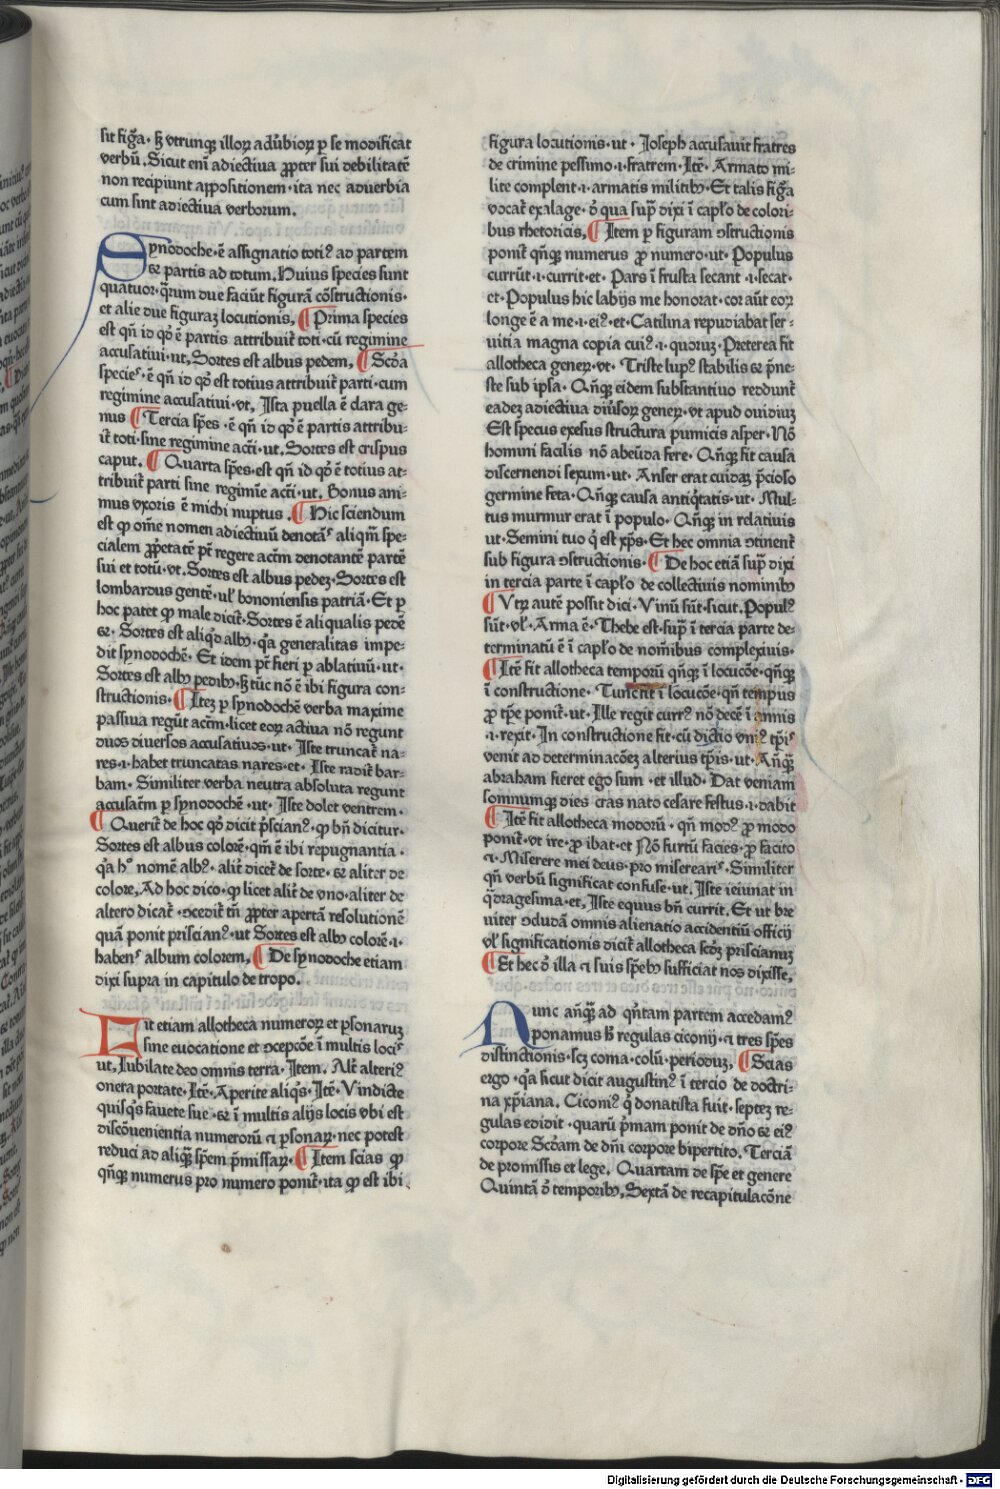 sit figᷓa· ꝫ vtrunqꝫ illoꝝ aduͦbioꝝ ꝑ se modificat
verbū. Sicut eni adiectiua ꝓpter sui debilitatē
non recipiunt appositionem·ita nec aduerbia
cum sint adiectiua verborum.
Synodoche·ē assignatio totiꝰ ad partem
⁊ partis ad totum. Huius species sunt
quatuor·qͣrum due faciūt figurā cōstructionis·
et alie due figuraꝫ locutionis, ¶ Prima species
est qñ id qd̕ ē partis attribuit̕ toti·cū regimine
accusatiui·ut, Sortes est albus pedem, ¶ Scd̕a
species·ē qñ id qd̕ est totius attribuit̕ parti·cum
regimine accusatiui·vt, Ista puella ē clara ge-
nus ¶ Tercia sp̄es·ē qñ id qd̕ ē partis attribu-
it̕ toti·sine regimine acc̄ti·ut. Sortes est crispus
caput. ¶ Quarta sp̄es·est qñ id qd̕ ē totius at-
tribuit̕ parti sine regimīe acc̄ti·ut. Bonus ani-
mus vxoris ē michi nuptus. ¶ Hic sciendum
est ꝙ om̄e nomen adiectiuū denotās aliqm̄ spe-
cialem ꝓp̄etatē pt̄ regere actm̄ denotantē partē
sui et totū·vt. Sortes est albus pedeꝫ·Sortes est
lombardus gentē·ul̕ bononiensis patriā·Et ꝑ
hoc patet ꝙ male dicit̕·Sortes ē aliqualis pedē
⁊·Sortes est aliqd̕ albꝫ·qͣ generalitas impe-
dit synodochē·Et idem pt̄ fieri ꝑ ablatiuū·ut·
Sortes est albꝫ pedibꝫ·ꝫ tūc nō ē ibi figura con-
structionis· ¶ Iteꝫ ꝑ synodochē verba maxime
passiua regūt actm̄·licet eoꝝ actiua nō regunt
duos diuersos accusatiuos·ut·Iste truncat̕ na-
res·i·habet truncatas nares·et·Iste radit̕ bar-
bam·Similiter verba neutra absoluta regunt
accusatm̄ ꝑ synodochē·ut·Iste dolet ventrem·
¶ Querit̕ de hoc qd̕ dicit p̄scianꝰ·ꝙ bn̄ dicitur·
Sortes est albus colorē·qm̄ ē ibi repugnantia·
qͣ hͦ nomē albꝰ·alit̕ dicet̕ de sorte·⁊ aliter de
colore, Ad hoc dico·ꝙ licet alit̕ de vno·aliter de
altero dicat̕·ↄcedit̕ tn̄ ꝓpter apertā resolutionē
quā ponit priscianꝰ·ut Sortes est albꝫ colorē·i·
habens album colorem, ¶ De synodoche etiam
dixi supra in capitulo de tropo.
Fit etiam allotheca numeroꝝ et ꝑsonaruꝫ
sine euocatione et ↄcepcōe ī multis locis
ut, Iubilate deo omnis terra·Item. Alt̕ alteriꝰ
onera portate·Itē·Aperite aliqͥs·Itē·Vindicte
quisqͥs fauete sue·⁊ ī multis alijs locis vbi est
discōuenientia numerorū ⁊ ꝑsonaꝝ·nec potest
reduci ad aliquā sp̄em p̄missaꝝ· ¶ Item scias ꝙ
qñqꝫ numerus pro numero ponit̕·ita ꝙ est ibi
figura locutionis·ut·Joseph accusauit fratres
de crimine pessimo·i·fratrem·Itē·Armato mi-
lite complent·i·armatis militibꝫ·Et talis figᷓa
vocat̕ exalage·d̕ qua supͣ dixi ī capl̕o de colori-
bus rhetoricis, ¶ Item ꝑ figuram ↄstructionis
ponit̕ qñqꝫ numerus ꝓ numero·ut·Populus
currūt·i·currit·et·Pars ī frusta secant·i·secat·
et·Populus hic labijs me honorat·cor aūt eoꝝ
longe ē a me·i·eiꝰ·et·Catilina repudiabat ser-
uitia magna copia cuiꝰ·i·quoruꝫ·Preterea fit
allotheca geneꝝ·vt·Triste lupꝰ stabilis ⁊ p̄ne-
ste sub ipsa·Qñqꝫ eidem substantiuo reddunt̕
eadeꝫ adiectiua diuͦsoꝝ geneꝝ·vt apud ouidiuꝫ
Est specus exesus structura pumicis asper·Nō
homini facilis nō abeūda fere·Qñqꝫ fit causa
discernendi sexum·ut·Anser erat cuidaꝫ p̄cioso
germine feta·Qñqꝫ causa antiqͥtatis·ut·Mul-
tus murmur erat ī populo·Qñqꝫ in relatiuis
ut·Semini tuo qͥ est xp̄s·Et hec omnia ↄtinent̕
sub figura ↄstructionis· ¶ De hoc etiā supͣ dixi
in tercia parte ī capl̕o de collectiuis nominibꝫ
¶ Vtꝝ autē possit dici·Vinū sūt·sicut, Populꝰ
sūt·ul̕·Arma ē·Thebe est·supͣ ī tercia parte de-
terminatū ē ī capl̕o de nom̄ibus complexiuis·
¶ Itē fit allotheca temporū qñqꝫ ī locucōe·qñqꝫ
ī constructione·Tunc fit ī locucōe·qñ tempus
ꝓ tp̄e ponit̕·ut·Ille regit currꝰ nō decē ī annis
·i·rexit·In constructione fit·cū dictio vniꝰ tp̄is
venit ad determinacōeꝫ alterius tp̄is·ut·Añqꝫ
abraham fieret ego sum·et illud·Dat veniam
somnumqꝫ dies cras nato cesare festus·i·dabit
¶ Itē fit allotheca modorū·qñ modꝰ ꝓ modo
ponit̕·vt ire·ꝓ ibat·et Nō furtū facies·ꝓ facito
⁊·Miserere mei deus·pro miserearis·Similiter
qñ verbū significat confuse·ut, Iste ieiunat in
qͣdragesima·et, Iste equus bn̄ currit, Et ut bre
uiter ↄcludā omnis alienatio accidentiū officij
ul̕ significationis dicit̕ allotheca scd̕ꝫ priscianuꝫ
¶ Et hec d̕ illa ⁊ suis sp̄ebꝫ sufficiat nos dixisse,
Nunc añqͣꝫ ad qͥntam partem accedamꝰ
ponamus hͦ regulas ciconij·⁊ tres sp̄es
distinctionis·scꝫ coma·colū·perioduꝫ, ¶ Scias
ergo·qͣ sicut dicit augustinꝰ ī tercio de doctri-
na xp̄iana, Ciconiꝰ qͥ donatista fuit·septeꝫ re-
gulas edidit·quarū p̄mam ponit de dn̄o ⁊ eiꝰ
corpore Scd̕am de dn̄i corpore bipertito. Terciā
de promissis et lege, Quartam de sp̄e et genere
Quintā d̕ temporibꝫ, Sextā de recapitulacōne
Digitalisierung gefördert durch die Deutsche Forschungsgemeinschaft - DFG